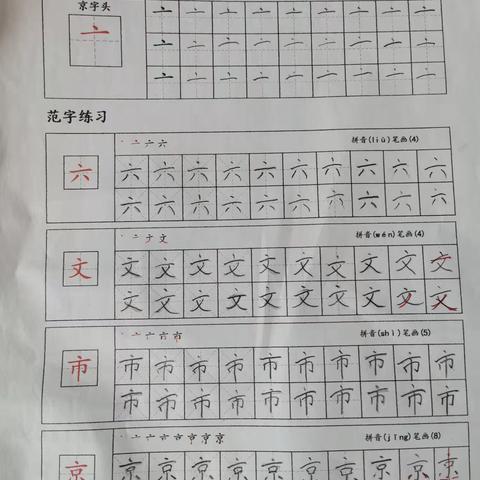 京字头
亠
亠 亠 亠 亠 亠 亠 亠 亠
亠 亠 亠 亠 亠 亠 亠 亠
亠 亠 亠 亠 亠 亠 亠 亠
范字练习
拼音(liù)笔画(4)
六
六 六 六 六 六 六 六 六 六 六
六 六 六 六 六 六 六 六 六 六
拼音(wén)笔画(4)
文
文 文 文 文 文 文 文 文 文 文
文 文 文 文 文 文 文 文 文 文
拼音(shì)笔画(5)
市
市 市 市 市 市 市 市 市 市 市
市 市 市 市 市 市 市 市 市 市
拼音(jīng)笔画(8)
京
京 京 京 京 京 京 京 京 京 京